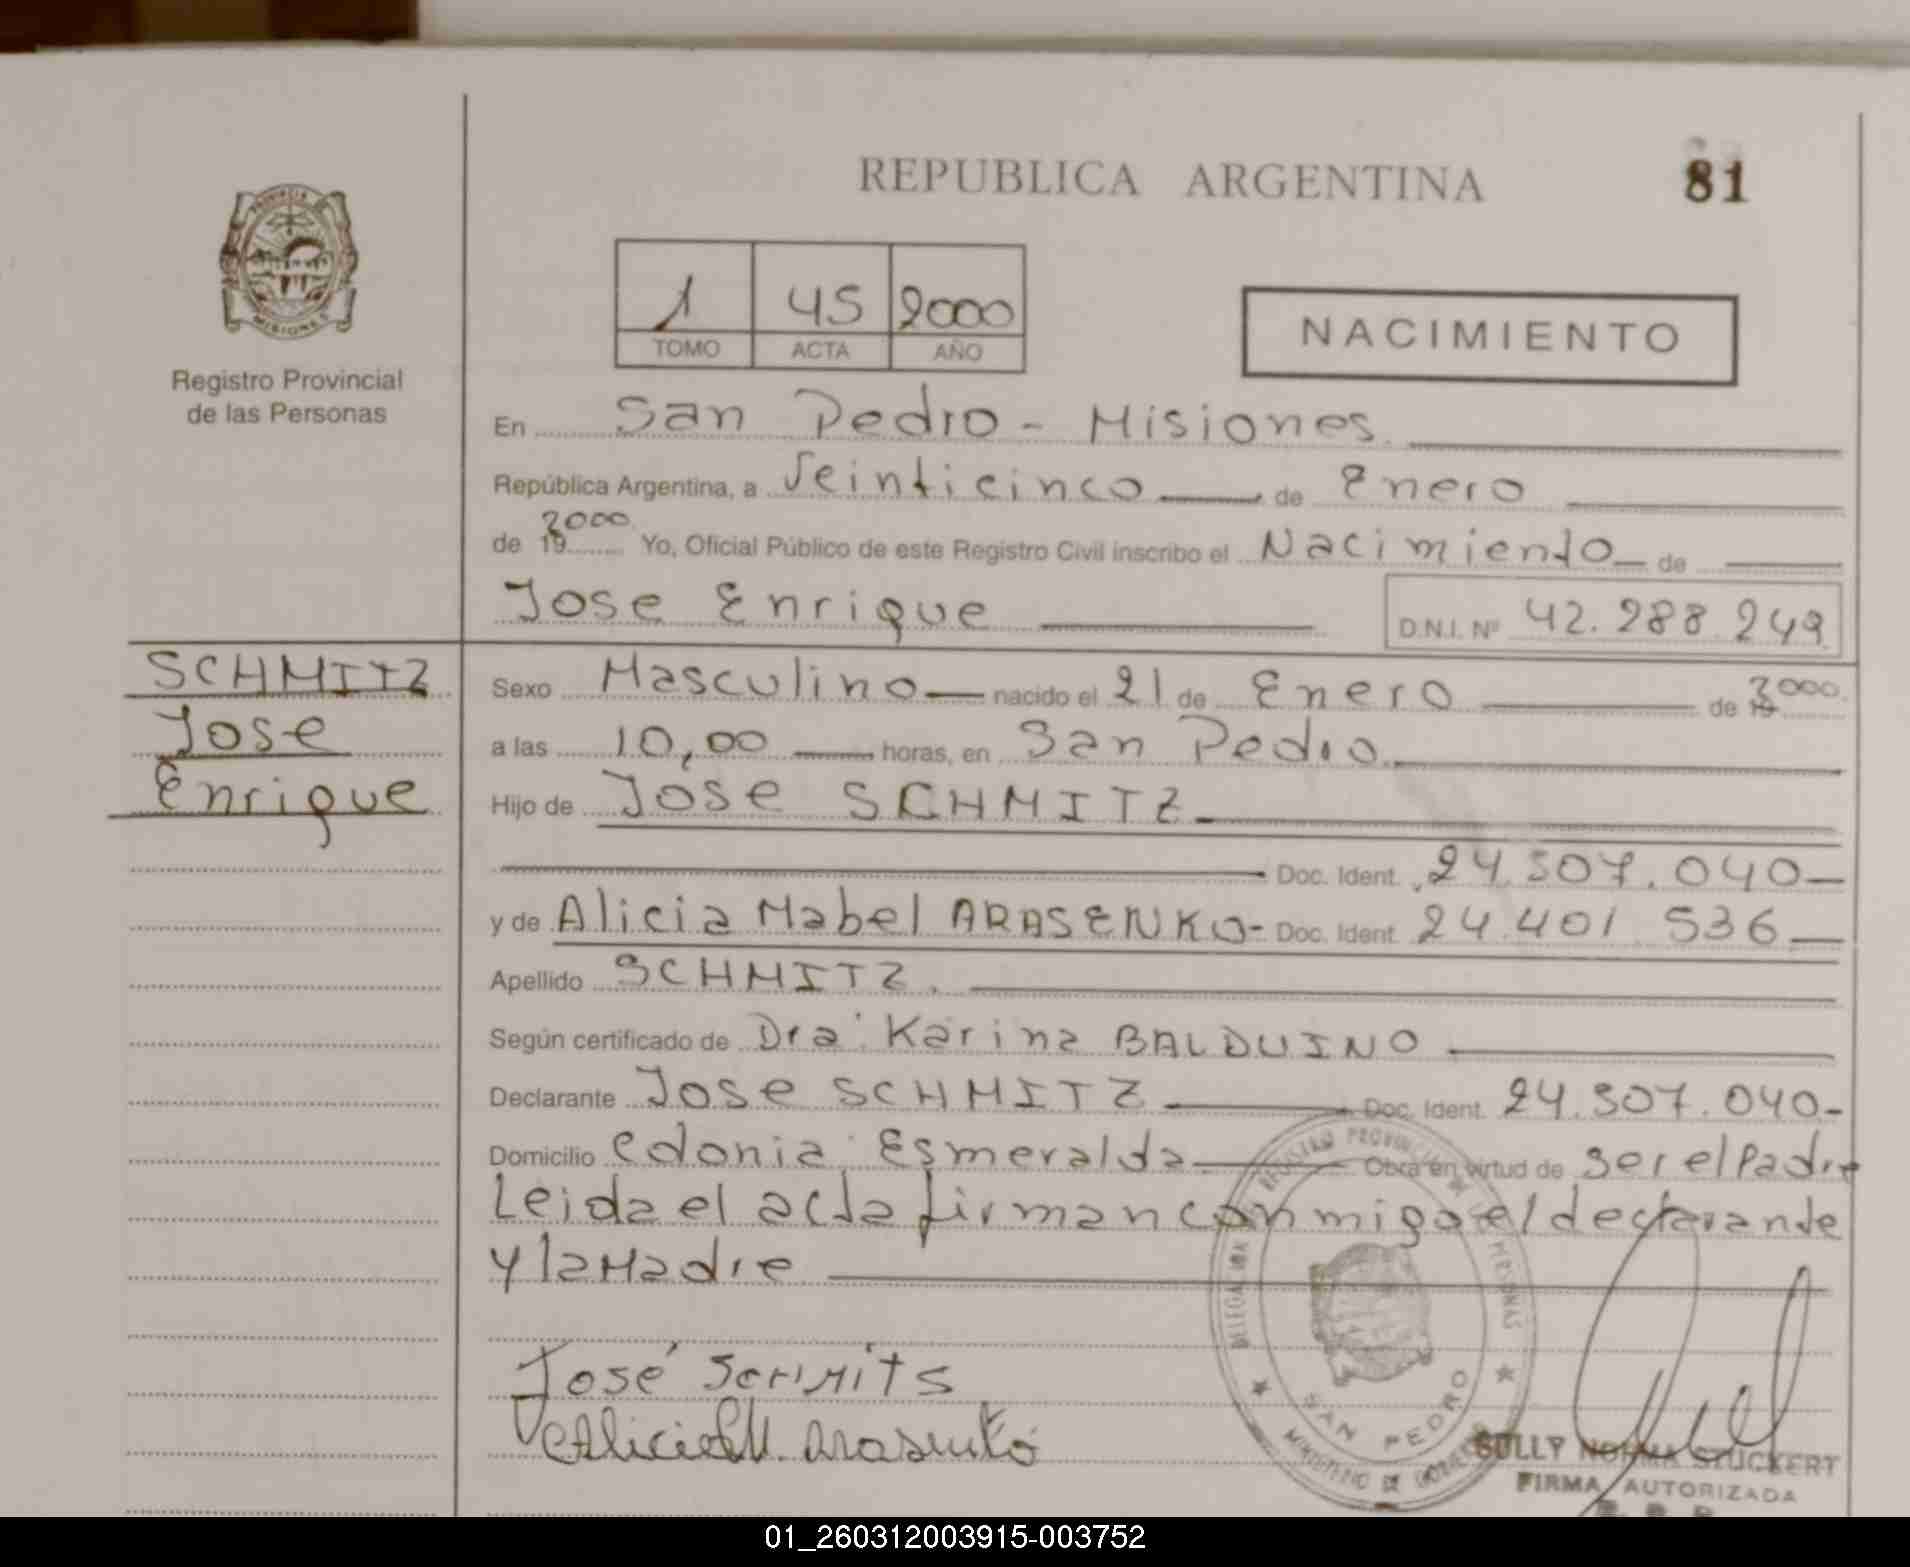 REPUBLICA ARGENTINA
81
PROVINCIA DE
MISIONES
Registro Provincial
de las Personas
1 45 2000
TOMO ACTA AÑO
NACIMIENTO
En San Pedro - Misiones
República Argentina, a Veinticinco de Enero
de 19 2000 Yo, Oficial Público de este Registro Civil inscribo el Nacimiento de
Jose Enrique D.N.I. Nº 42.288.249
SCHMITZ
Jose
Enrique
Sexo Masculino nacido el 21 de Enero de 19 2000
a las 10,00 horas, en San Pedro
Hijo de Jose SCHMITZ
Doc. Ident. 24.507.040
y de Alicia Mabel ARASENKO - Doc. Ident. 24.401.536
Apellido SCHMITZ.
Según certificado de Dra. Karina BALDUINO
Declarante Jose SCHMITZ Doc. Ident. 24.507.040-
Domicilio Colonia Esmeralda Obra en virtud de ser el Padre
Leida el acta firman conmigo el declarante
y la Madre
José SCHMITS
Alicia M. Arasenko
DELEGACION REGISTRO PROVINCIAL DE LAS PERSONAS
SAN PEDRO
MINISTERIO DE GOBIERNO
SULLY NORMA STUCKERT
FIRMA AUTORIZADA
01_260312003915-003752